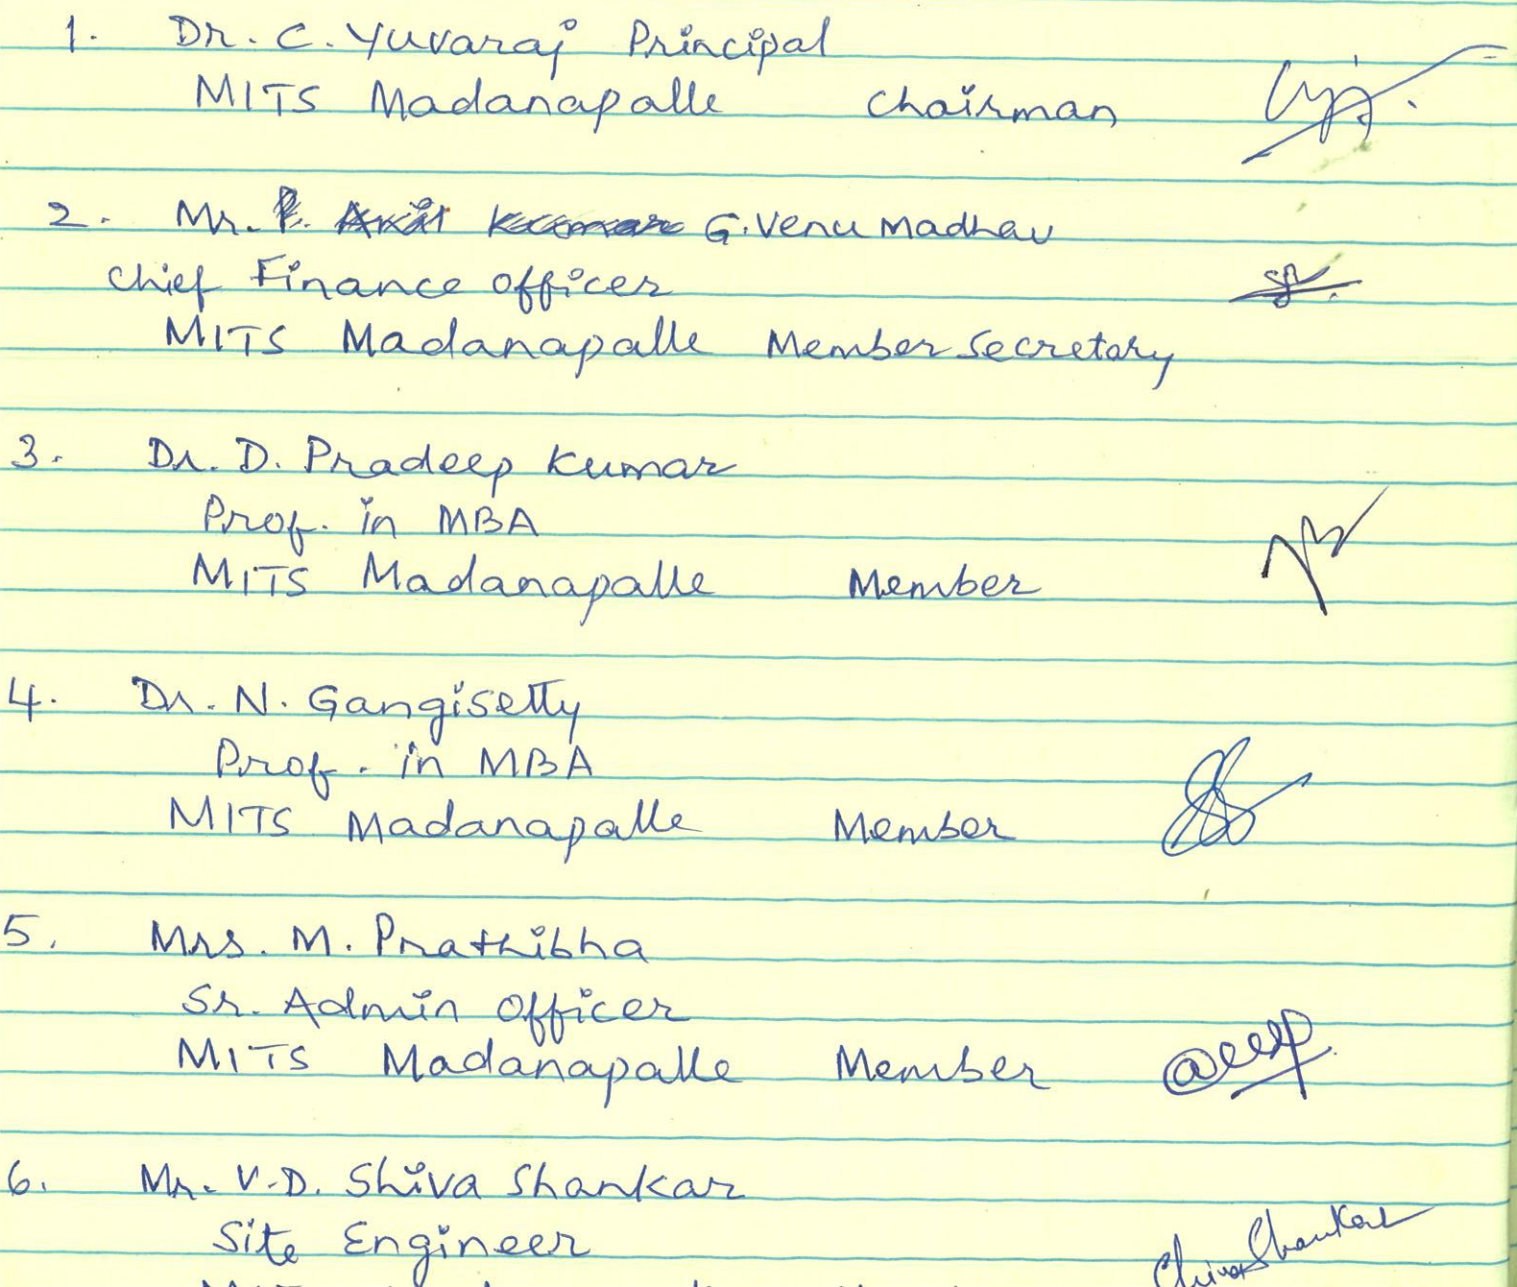 1. Dr. C. Yuvaraj Principal
MITS Madanapalle Chairman
2. Mr. G. Venu Madhav
Chief Finance Officer
MITS Madanapalle Member Secretary
3. Dr. D. Pradeep Kumar
Prof. in MBA
MITS Madanapalle Member
4. Dr. N. Gangisetty
Prof. in MBA
MITS Madanapalle Member
5. Mrs. M. Prathibha
Sr. Admin Officer
MITS Madanapalle Member
6. Mr. V.D. Shiva Shankar
Site Engineer